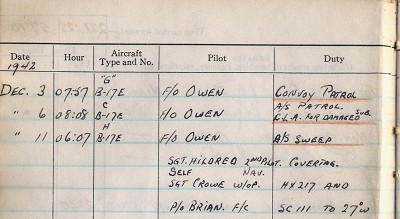 Date Hour Aircraft Type and No. Pilot Duty
1942
"G"
DEC. 3 07:57 B-17E F/O OWEN CONVOY PATROL
C A/S PATROL.
" 6 08:08 B-17E F/O OWEN C.L.A. FOR DAMAGED SUB.
H
" 11 06:07 B-17E F/O OWEN A/S SWEEP
SGT. HILDRED 2ND PILOT. COVERING.
SELF NAV.
SGT CROWE W/OP. HX217 AND
P/O BRIAN. F/C SC 111 TO 27°W